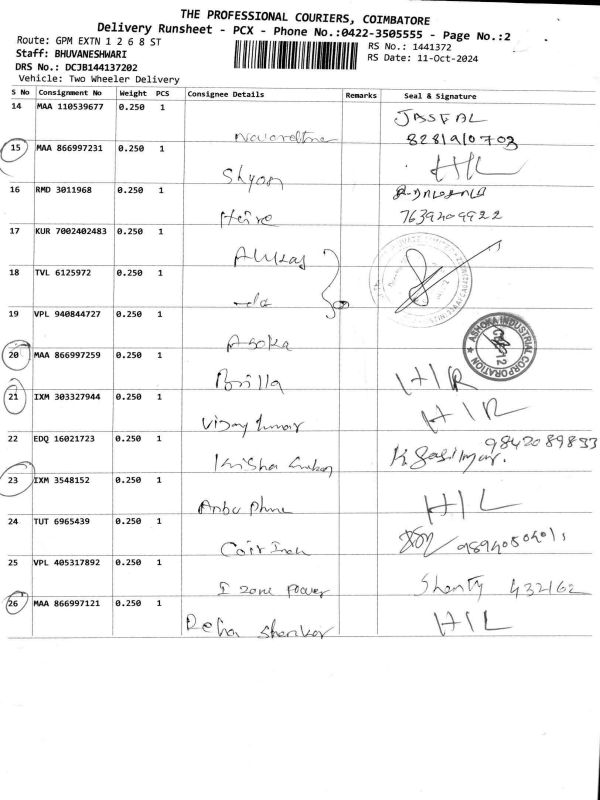 THE PROFESSIONAL COURIERS, COIMBATORE
Delivery Runsheet - PCX - Phone No.:0422-3505555 - Page No.:2
Route: GPM EXTN 1 2 6 8 ST
RS No.: 1441372
Staff: BHUVANESHWARI
RS Date: 11-Oct-2024
DRS No.: DCJB144137202
Vehicle: Two Wheeler Delivery
S No Consignment No Weight PCS Consignee Details Remarks Seal & Signature
14 MAA 110539677 0.250 1
15 MAA 866997231 0.250 1
Shyam H/L
16 RMD 3011968 0.250 1
Heire 7639209922
17 KUR 7002402483 0.250 1
Alukas
18 TVL 6125972 0.250 1
-do-
19 VPL 940844727 0.250 1
Asoka ASHOKA INDUSTRIAL CORPORATION
20 MAA 866997259 0.250 1
Brilla H/R
21 IXM 303327944 0.250 1
Vijay kumar H/R
22 EDQ 16021723 0.250 1
9842089833
23 IXM 3548152 0.250 1
Anbu Phone H/L
24 TUT 6965439 0.250 1
25 VPL 405317892 0.250 1
I zone Power Shenty 432162
26 MAA 866997121 0.250 1
shankar H/L